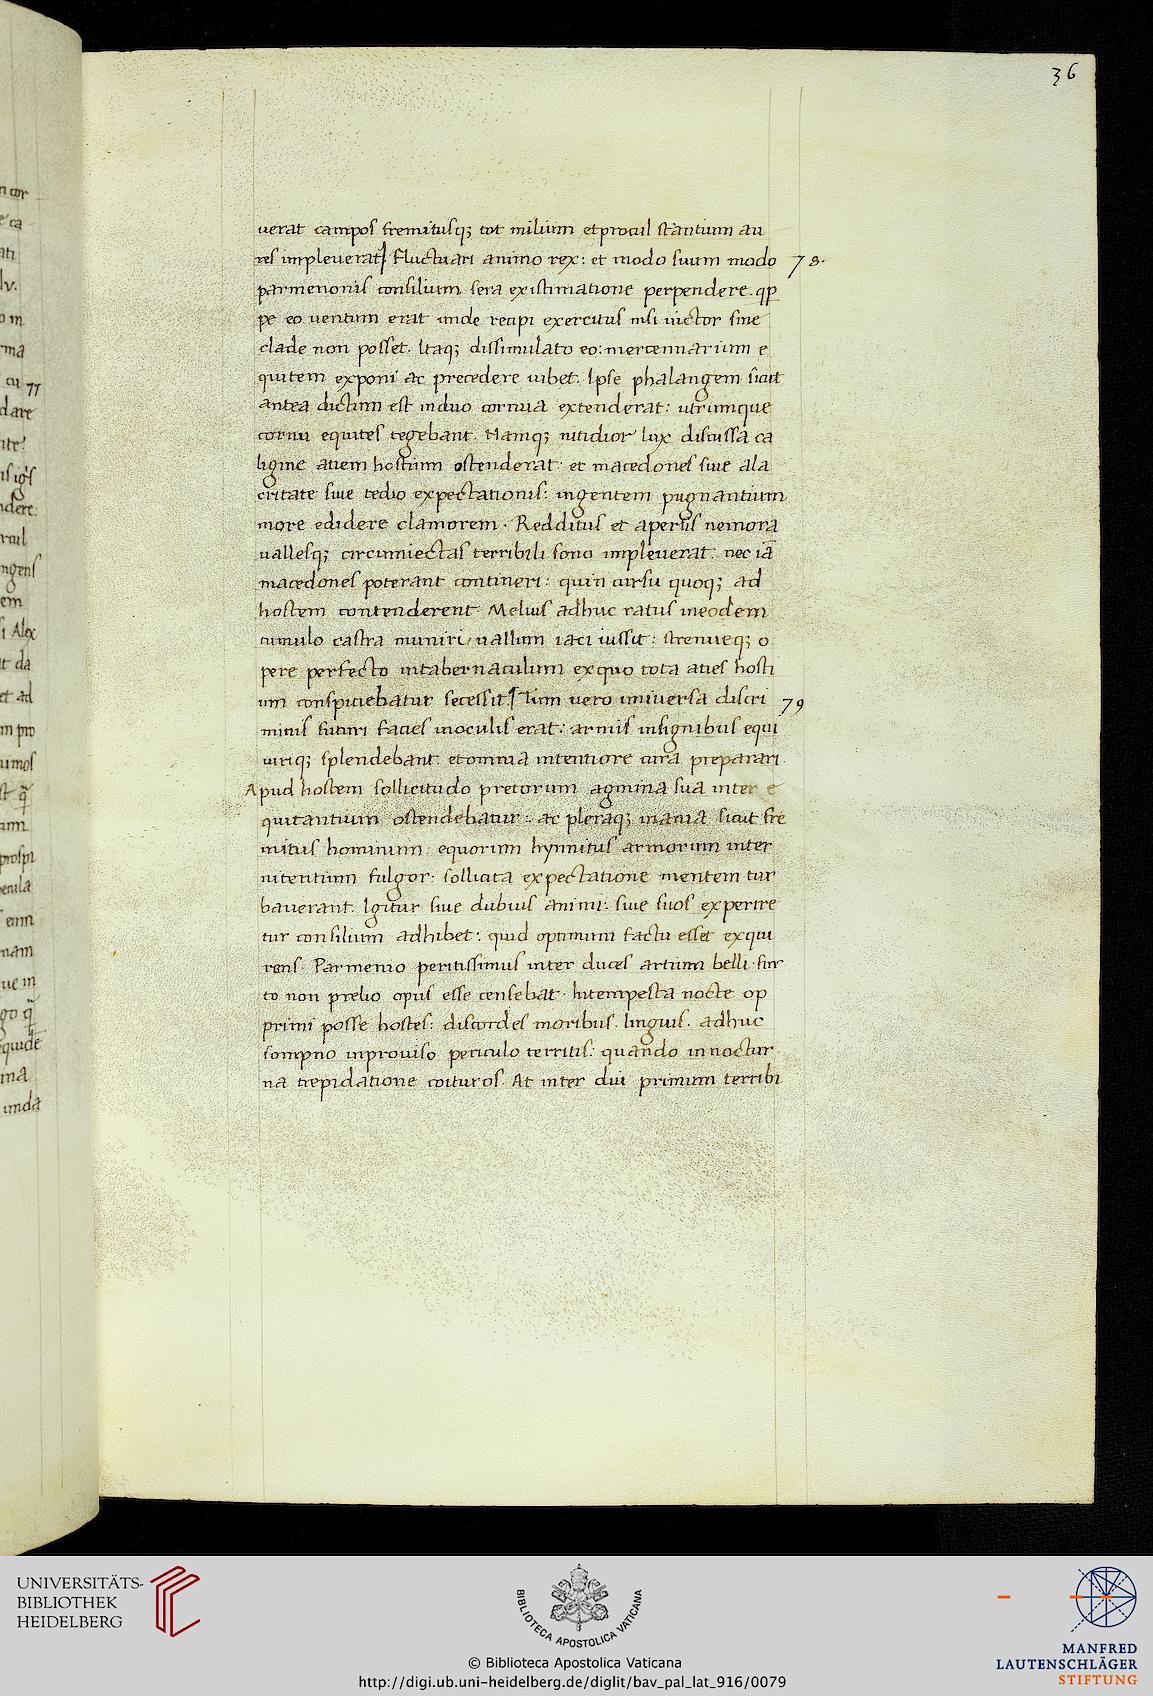 36
uerat campos fremitusq; tot milium et procul stantium au
res impleuerat Fluctuari animo rex: et modo suum modo 78.
parmenonis consilium sera existimatione perpendere. qp̄
pe eo uentum erat unde recipi exercitus nisi uictor sine
clade non posset. Itaq; dissimulato eo: mercennarium e
quitem exponi ac precedere iubet. Ipse phalangem sicut
antea dictum est induo cornua extenderat: utrumque
cornu equites tegebant. Namq; nitidior lux discussa ca
ligine aciem hostium ostenderat: et macedones siue ala
critate siue tedio expectationis: ingentem pugnantium
more edidere clamorem. Redditus et apersis nemora
uallesq; circumiectas terribili sono impleuerat: nec iā
macedones poterant contineri: quin cursu quoq; ad
hostem contenderent. Melius adhuc ratus ineodem
tumulo castra muniri, uallum iaci iussit: strenueq; o
pere perfecto intabernaculum exquo tota acies hosti
um conspiciebatur secessit. Tum uero uniuersa discri 79
minis futuri facies inoculis erat: armis insignibus equi
uiriq; splendebant. et omnia intentiore cura preparari.
Apud hostem sollicitudo pretorum agmina sua inter e
quitantium ostendebatur: ac pleraq; inania sicut fre
mitus hominum: equorum hynnitus armorum inter
nitentium fulgor: sollicita expectatione mentem tur
bauerant. Igitur siue dubius animi: siue suos experire
tur consilium adhibet: quid optimum factu esset exqui
rens. Parmenio peritissimus inter duces artium belli. fur
to non prelio opus esse censebat. Intempesta nocte op
primi posse hostes: discordes moribus. linguis. adhuc
sompno inprouiso periculo territis: quando innoctur
na trepidatione coituros. At inter dui primum terribi
n cor
77
dare
ngens
em
Alex
et ad
umos
prospi
nam
equide
ma
unda
UNIVERSITÄTS-
BIBLIOTHEK
HEIDELBERG
BIBLIOTECA APOSTOLICA VATICANA
© Biblioteca Apostolica Vaticana
http://digi.ub.uni-heidelberg.de/diglit/bav_pal_lat_916/0079
MANFRED
LAUTENSCHLÄGER
STIFTUNG